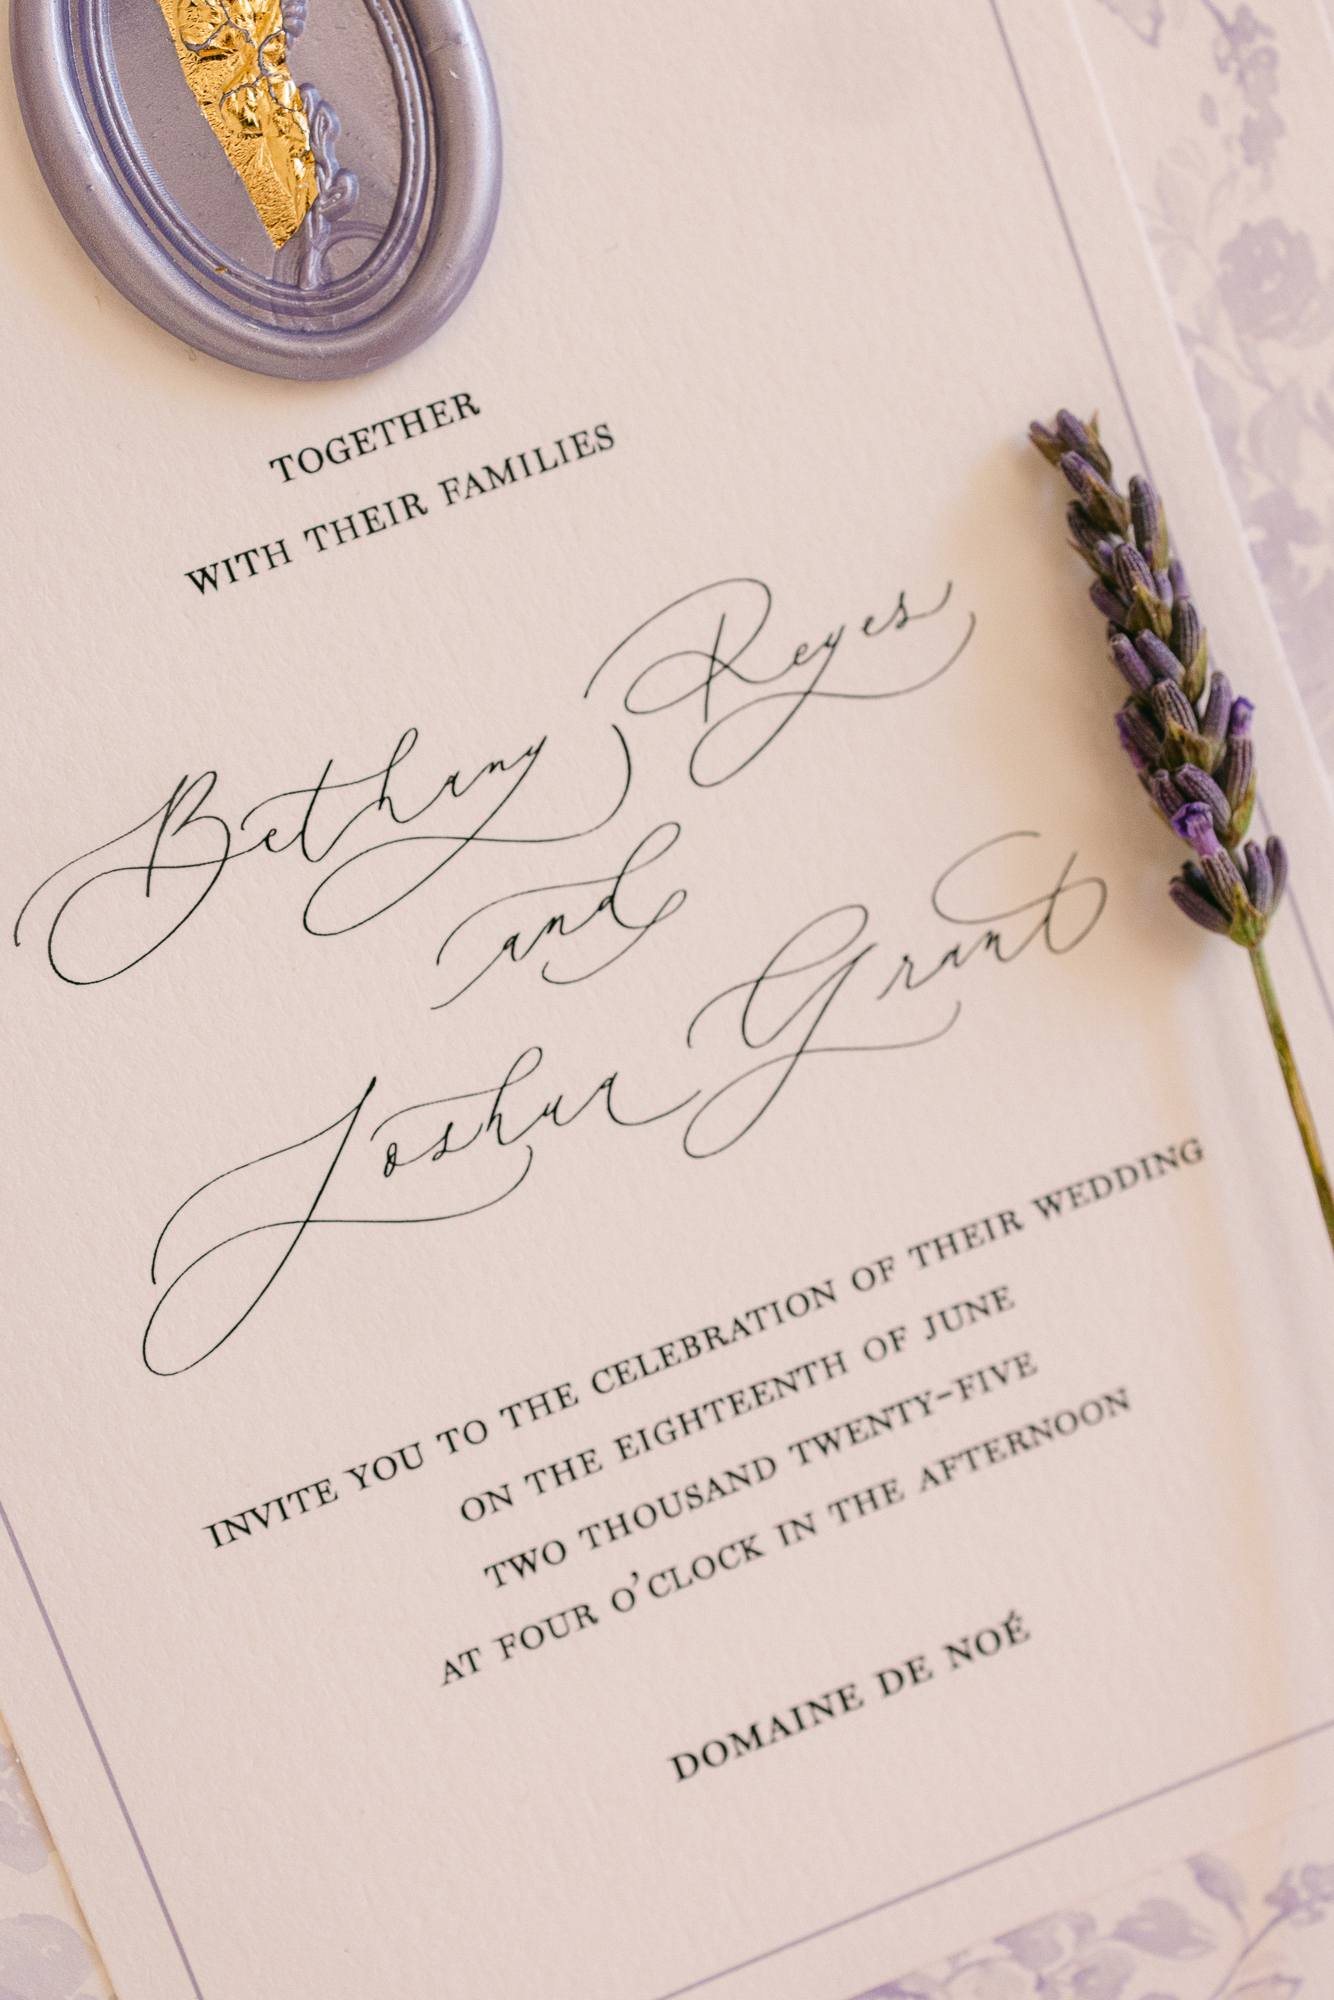 TOGETHER
WITH THEIR FAMILIES
Bethany Reyes
and
Joshua Grant
INVITE YOU TO THE CELEBRATION OF THEIR WEDDING
ON THE EIGHTEENTH OF JUNE
TWO THOUSAND TWENTY-FIVE
AT FOUR O'CLOCK IN THE AFTERNOON
DOMAINE DE NOÉ